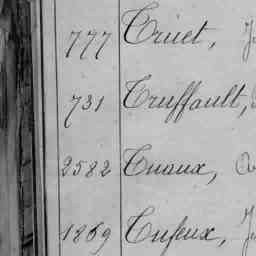 777 Truet, J
731 Truffault,
2582 Tuaux, A
1869 Tufeux, J